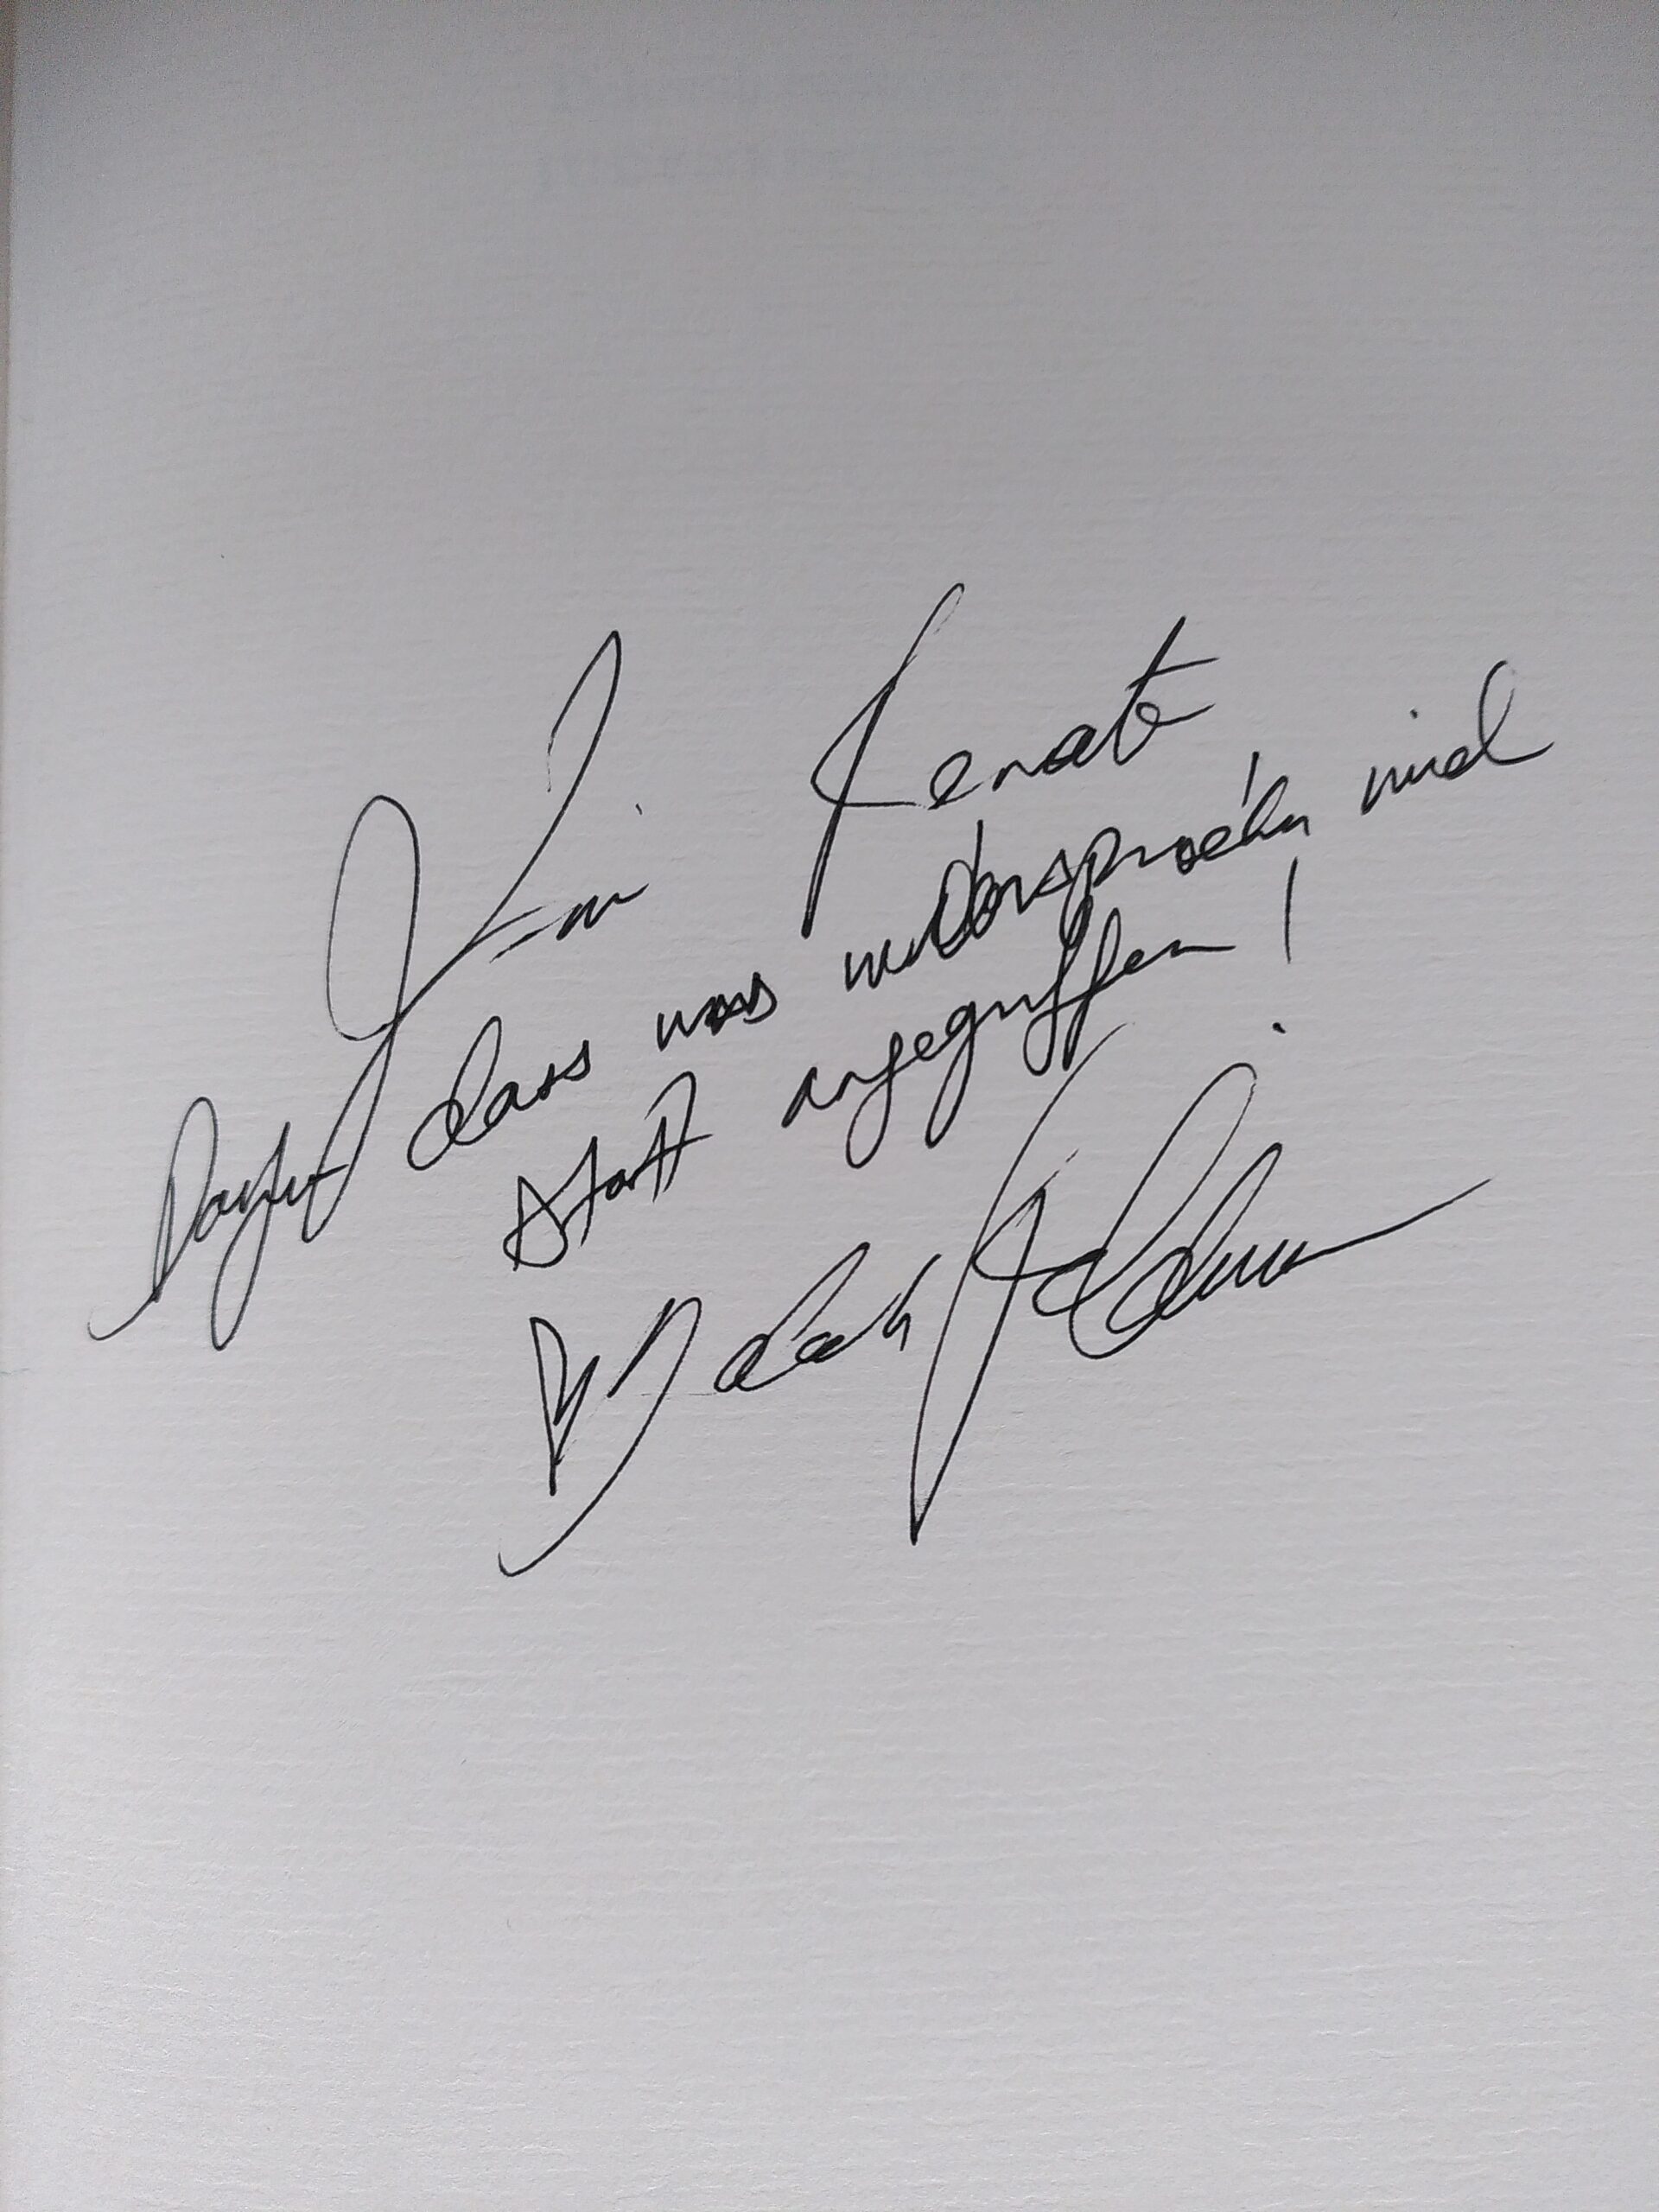 Für Renate
Dafür dass was widersprochen wird
statt angegriffen!